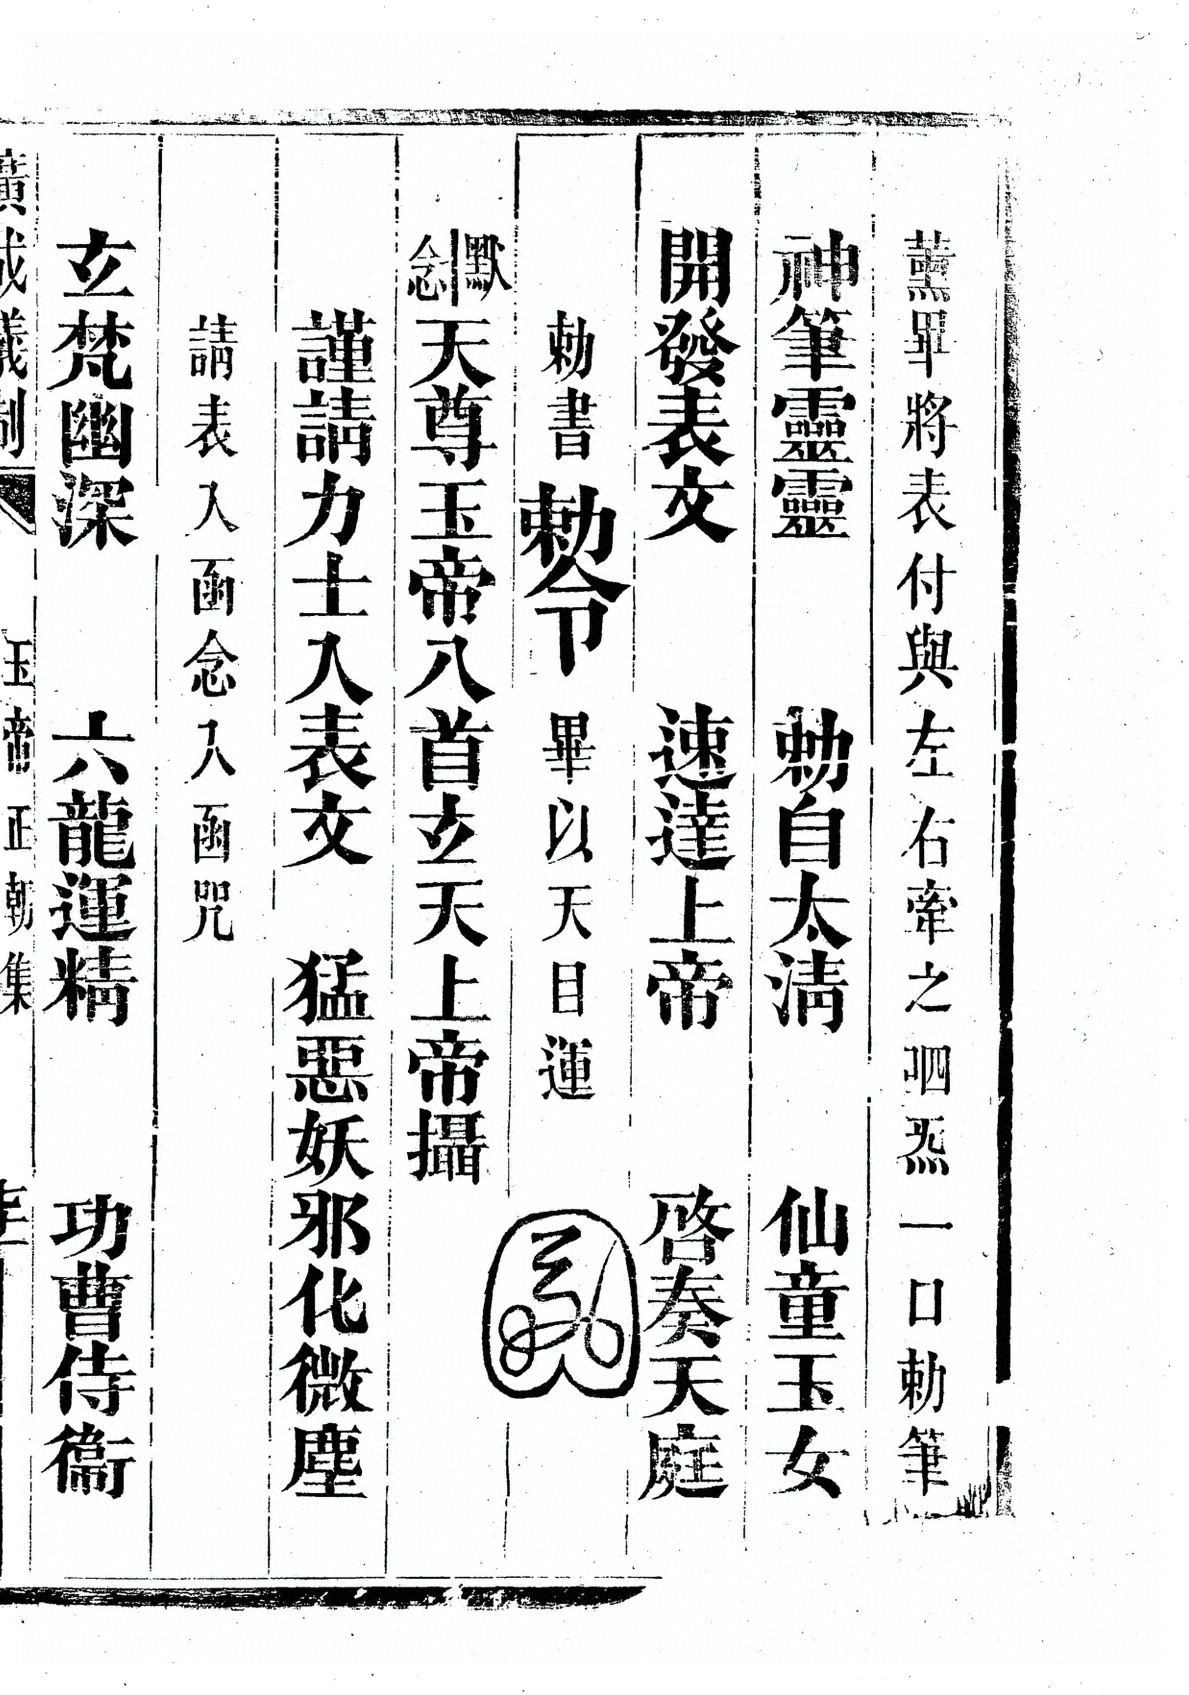 薰畢將表付與左右牽之呬炁一口勅筆
神筆靈靈　勅自太清　仙童玉女
開發表文　速達上帝　啓奏天庭
勅書勅令畢以天目運
默念天尊玉帝八首玄天上帝攝
謹請力士入表文　猛惡妖邪化微塵
請表入函念入函咒
玄梵幽深　六龍運精　功曹侍衞
廣成儀制　玉帝正朝集